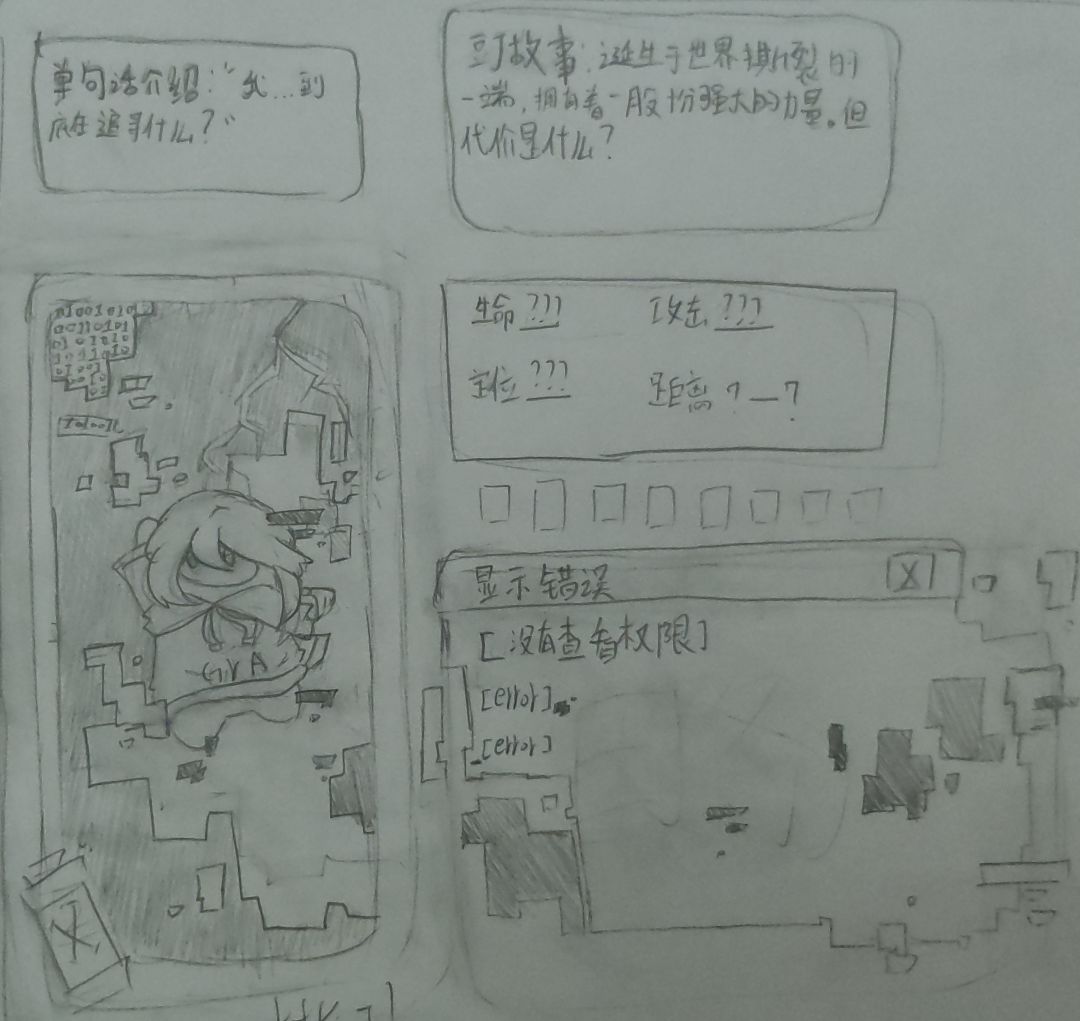 单句话介绍："我...到
底在追寻什么?"
故事:诞生于世界撕裂的
一端,拥有着一股十份强大的力量。但
代价是什么?
生命 ??? 攻击 ???
定位 ??? 距离 ?—?
01001010
0011010
显示错误 X
[没有查看权限]
[error]
[error]